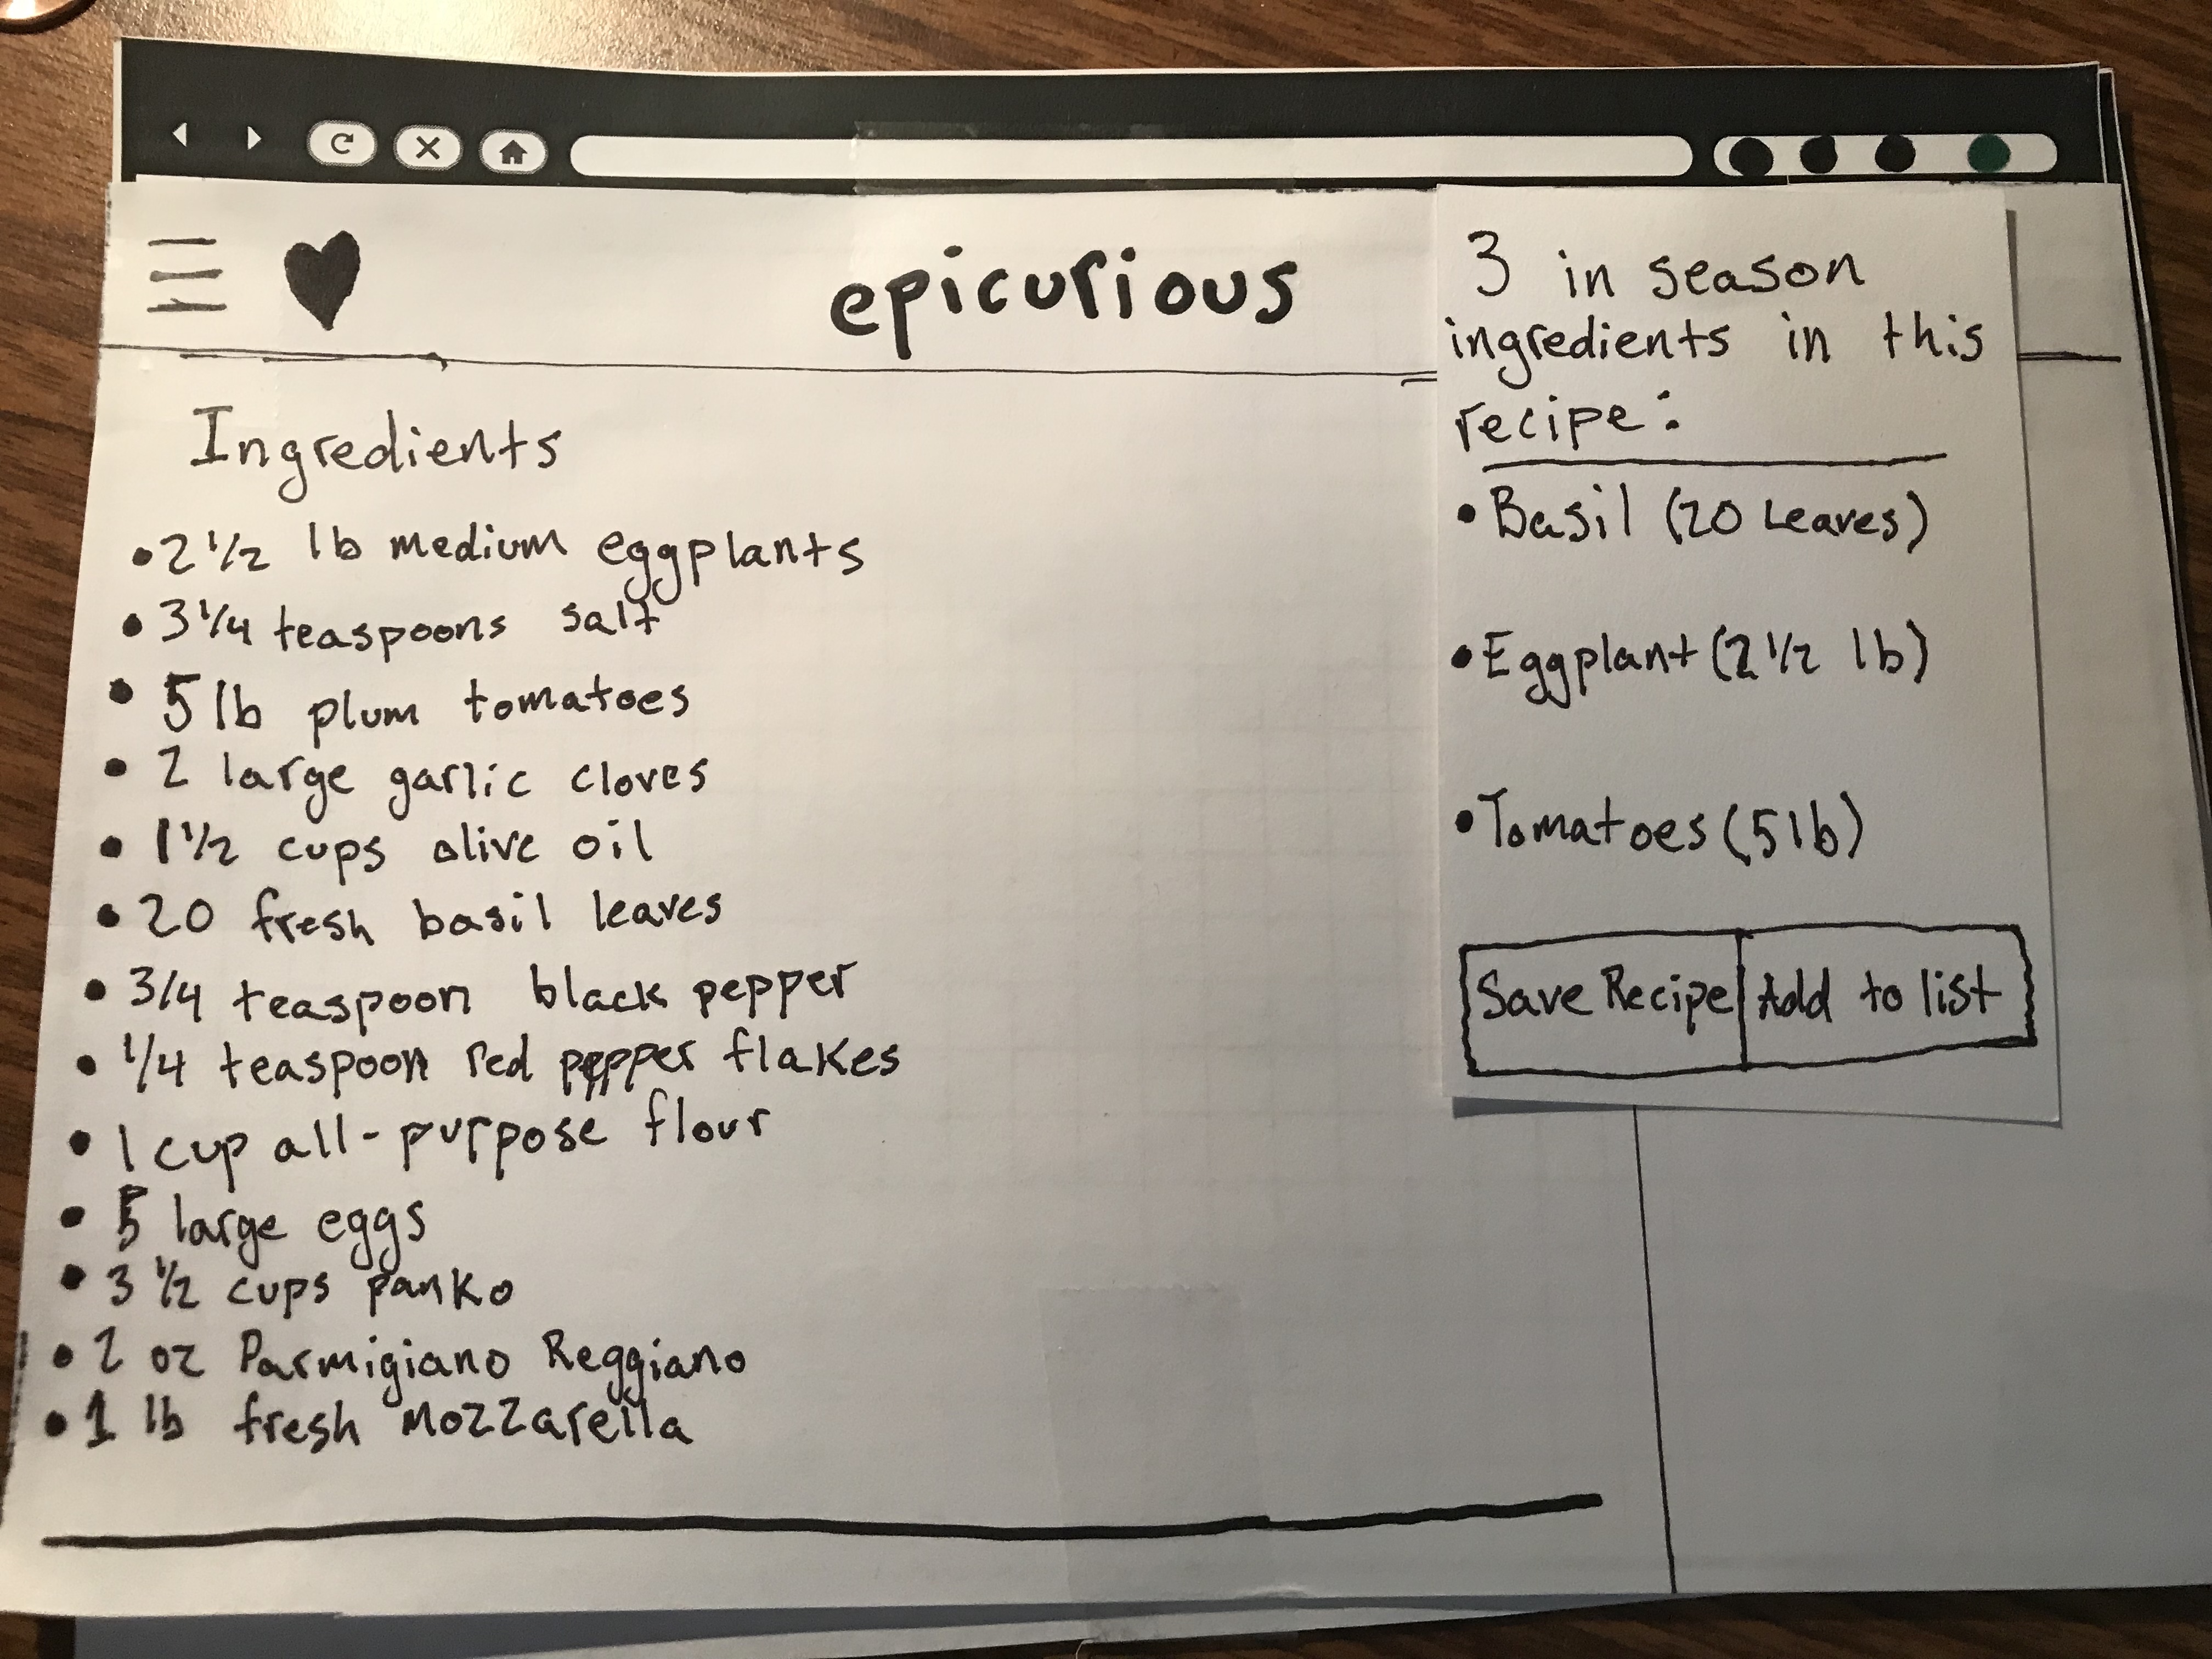 epicurious
Ingredients
• 2 1/2 lb medium eggplants
• 3 1/4 teaspoons salt
• 5 lb plum tomatoes
• 2 large garlic cloves
• 1 1/2 cups olive oil
• 20 fresh basil leaves
• 3/4 teaspoon black pepper
• 1/4 teaspoon red pepper flakes
• 1 cup all-purpose flour
• 5 large eggs
• 3 1/2 cups panko
• 2 oz Parmigiano Reggiano
• 1 lb fresh Mozzarella
3 in season
ingredients in this
recipe:
• Basil (20 Leaves)
• Eggplant (2 1/2 lb)
• Tomatoes (5 lb)
Save Recipe
Add to list